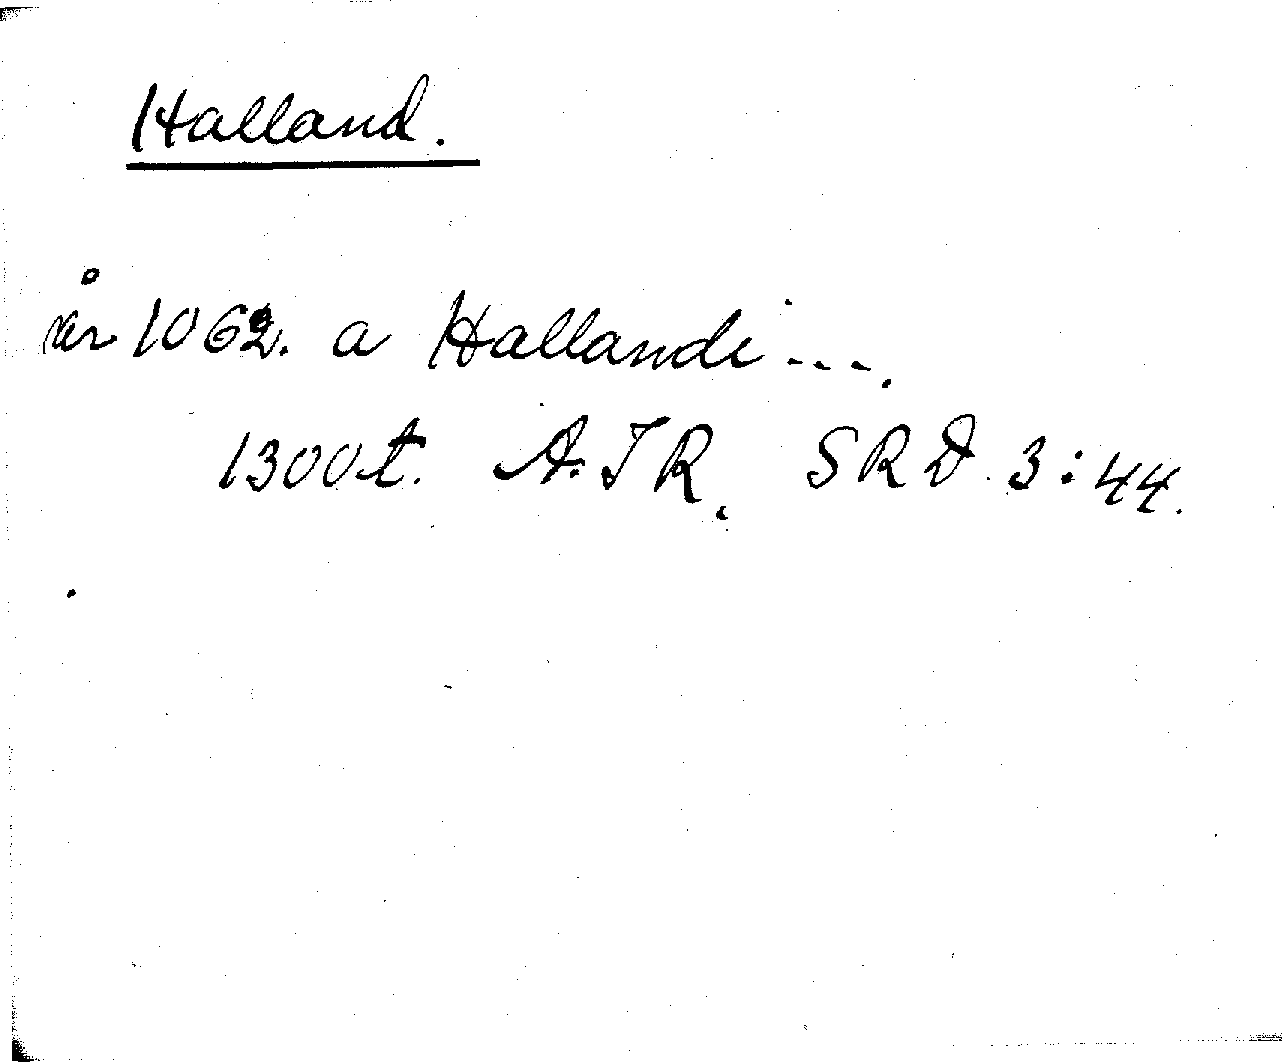 Halland.
år 1062. a Hallandi ---.
1300t. A.IR. SRD 3:44.